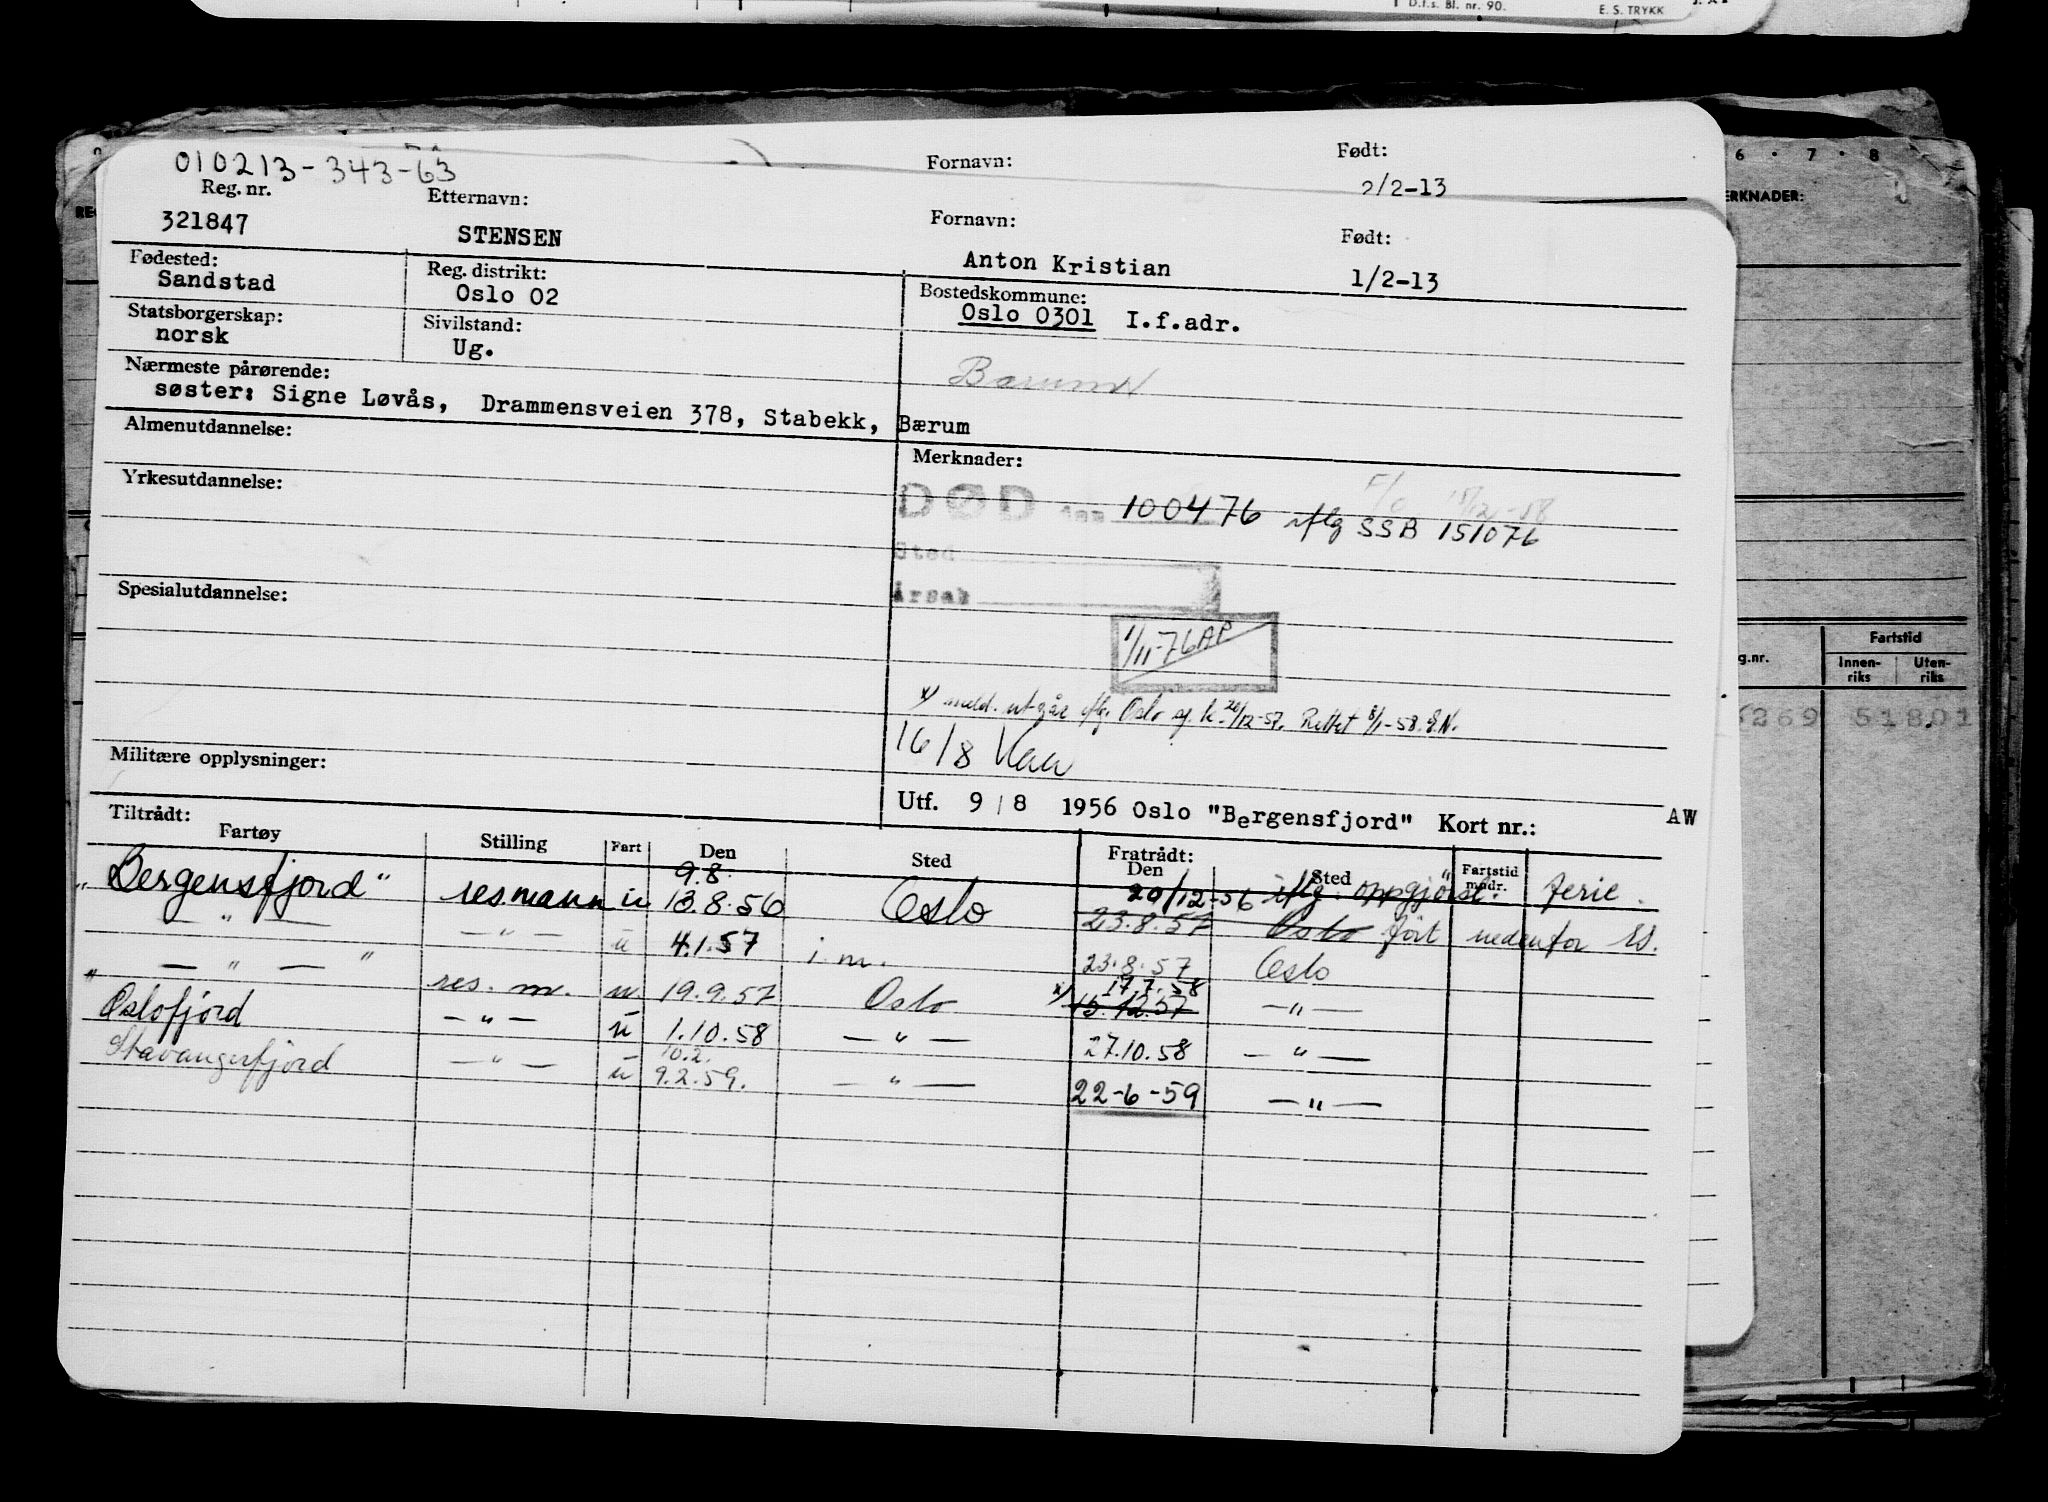 D.f.s. Bl. nr. 90. E. S. TRYKK
010213-343-63 Fornavn: Født:
2/2-13
6 · 7 · 8
Reg. nr. Etternavn: Fornavn: Født:
321847 STENSEN Anton Kristian 1/2-13
ERKNADER:
Fødested: Reg. distrikt: Bostedskommune:
Sandstad Oslo 02 Oslo 0301 I.f.adr.
Statsborgerskap: Sivilstand:
norsk Ug.
Bærum
Nærmeste pårørende:
søster: Signe Løvås, Drammensveien 378, Stabekk, Bærum
Almenutdannelse: Merknader:
Yrkesutdannelse:
DØD den 100476 iflg SSB 151076
15/12-58
Sted
Spesialutdannelse: Årsak
1/11-76 AP
x) meld. utgår iflg. Oslo sj. k. 20/12-57. Rettet 8/1-58. E.N.
16/8
Militære opplysninger:
Utf. 9/8 1956 Oslo "Bergensfjord" Kort nr.: AW
Tiltrådt: Fratrådt:
Fartøy Stilling Fart Den Sted Den Sted Fartstid mndr.
9.8.
"Bergensfjord" resmann u 13.8.56 Oslo 20/12-56 iflg. oppgjørsl. ferie.
— " — — " — u 4.1.57 i.m. 23.8.57 Oslo ført nedenfor
23.8.57 Oslo
— " — " res. m. u. 19.9.57 Oslo x) 15.12.57 17.7.58 — " —
"Oslofjord — " — u 1.10.58 — " — 27.10.58 — " —
Stavangerfjord — " — u 10.2. 9.2.59. — " — 22-6-59 — " —
g.nr. Fartstid
Innen-riks Uten-riks
269 51801